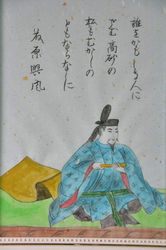 誰をかもしる人に
せむ高砂の
松もむかしの
ともならなくに
藤原興風